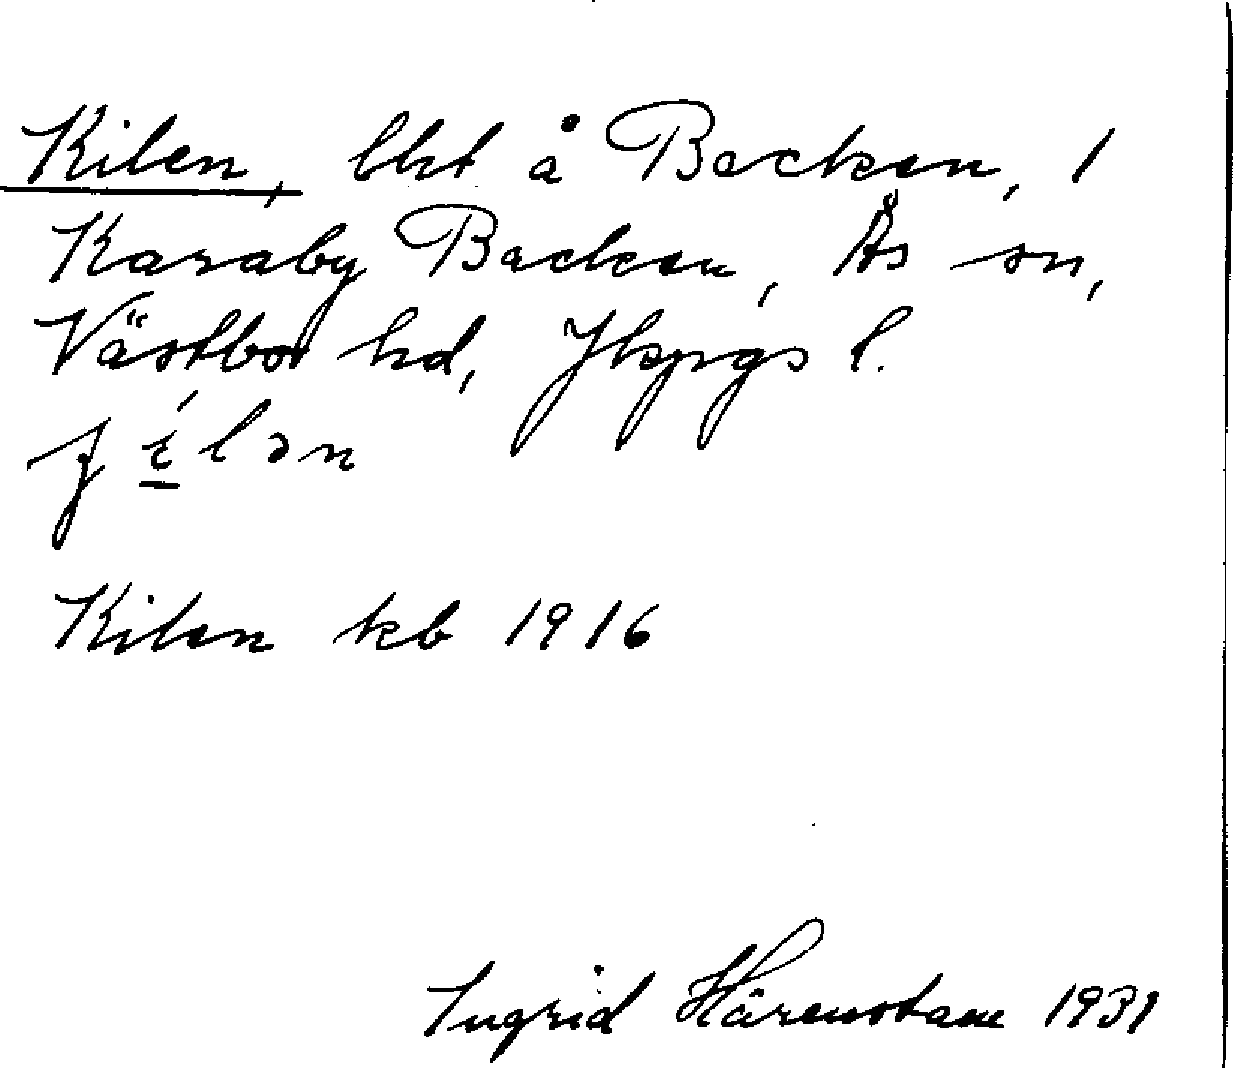 Kilen, lht å Backen, 1
Karaby Backen, Ås sn,
Västbo hd, Jkpgs l.
Kilen kb 1916
Ingrid Härenstam 1931